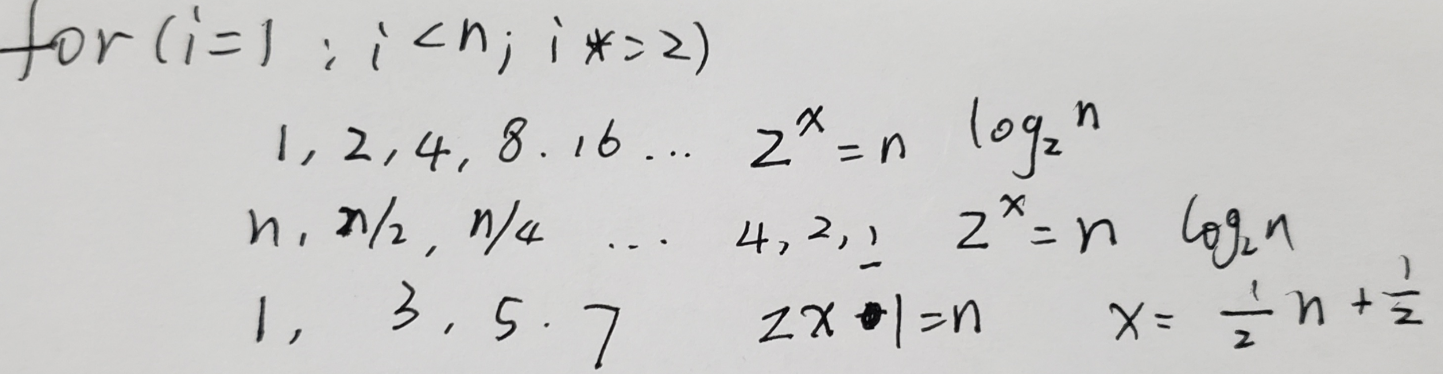 for(i=1 ; i<n; i*=2)
1, 2, 4, 8. 16 ... 2^x = n log₂ n
n, n/2, n/4 ... 4, 2, 1 2^x = n log₂ n
1, 3, 5. 7 2x - 1 = n x = 1/2 n + 1/2